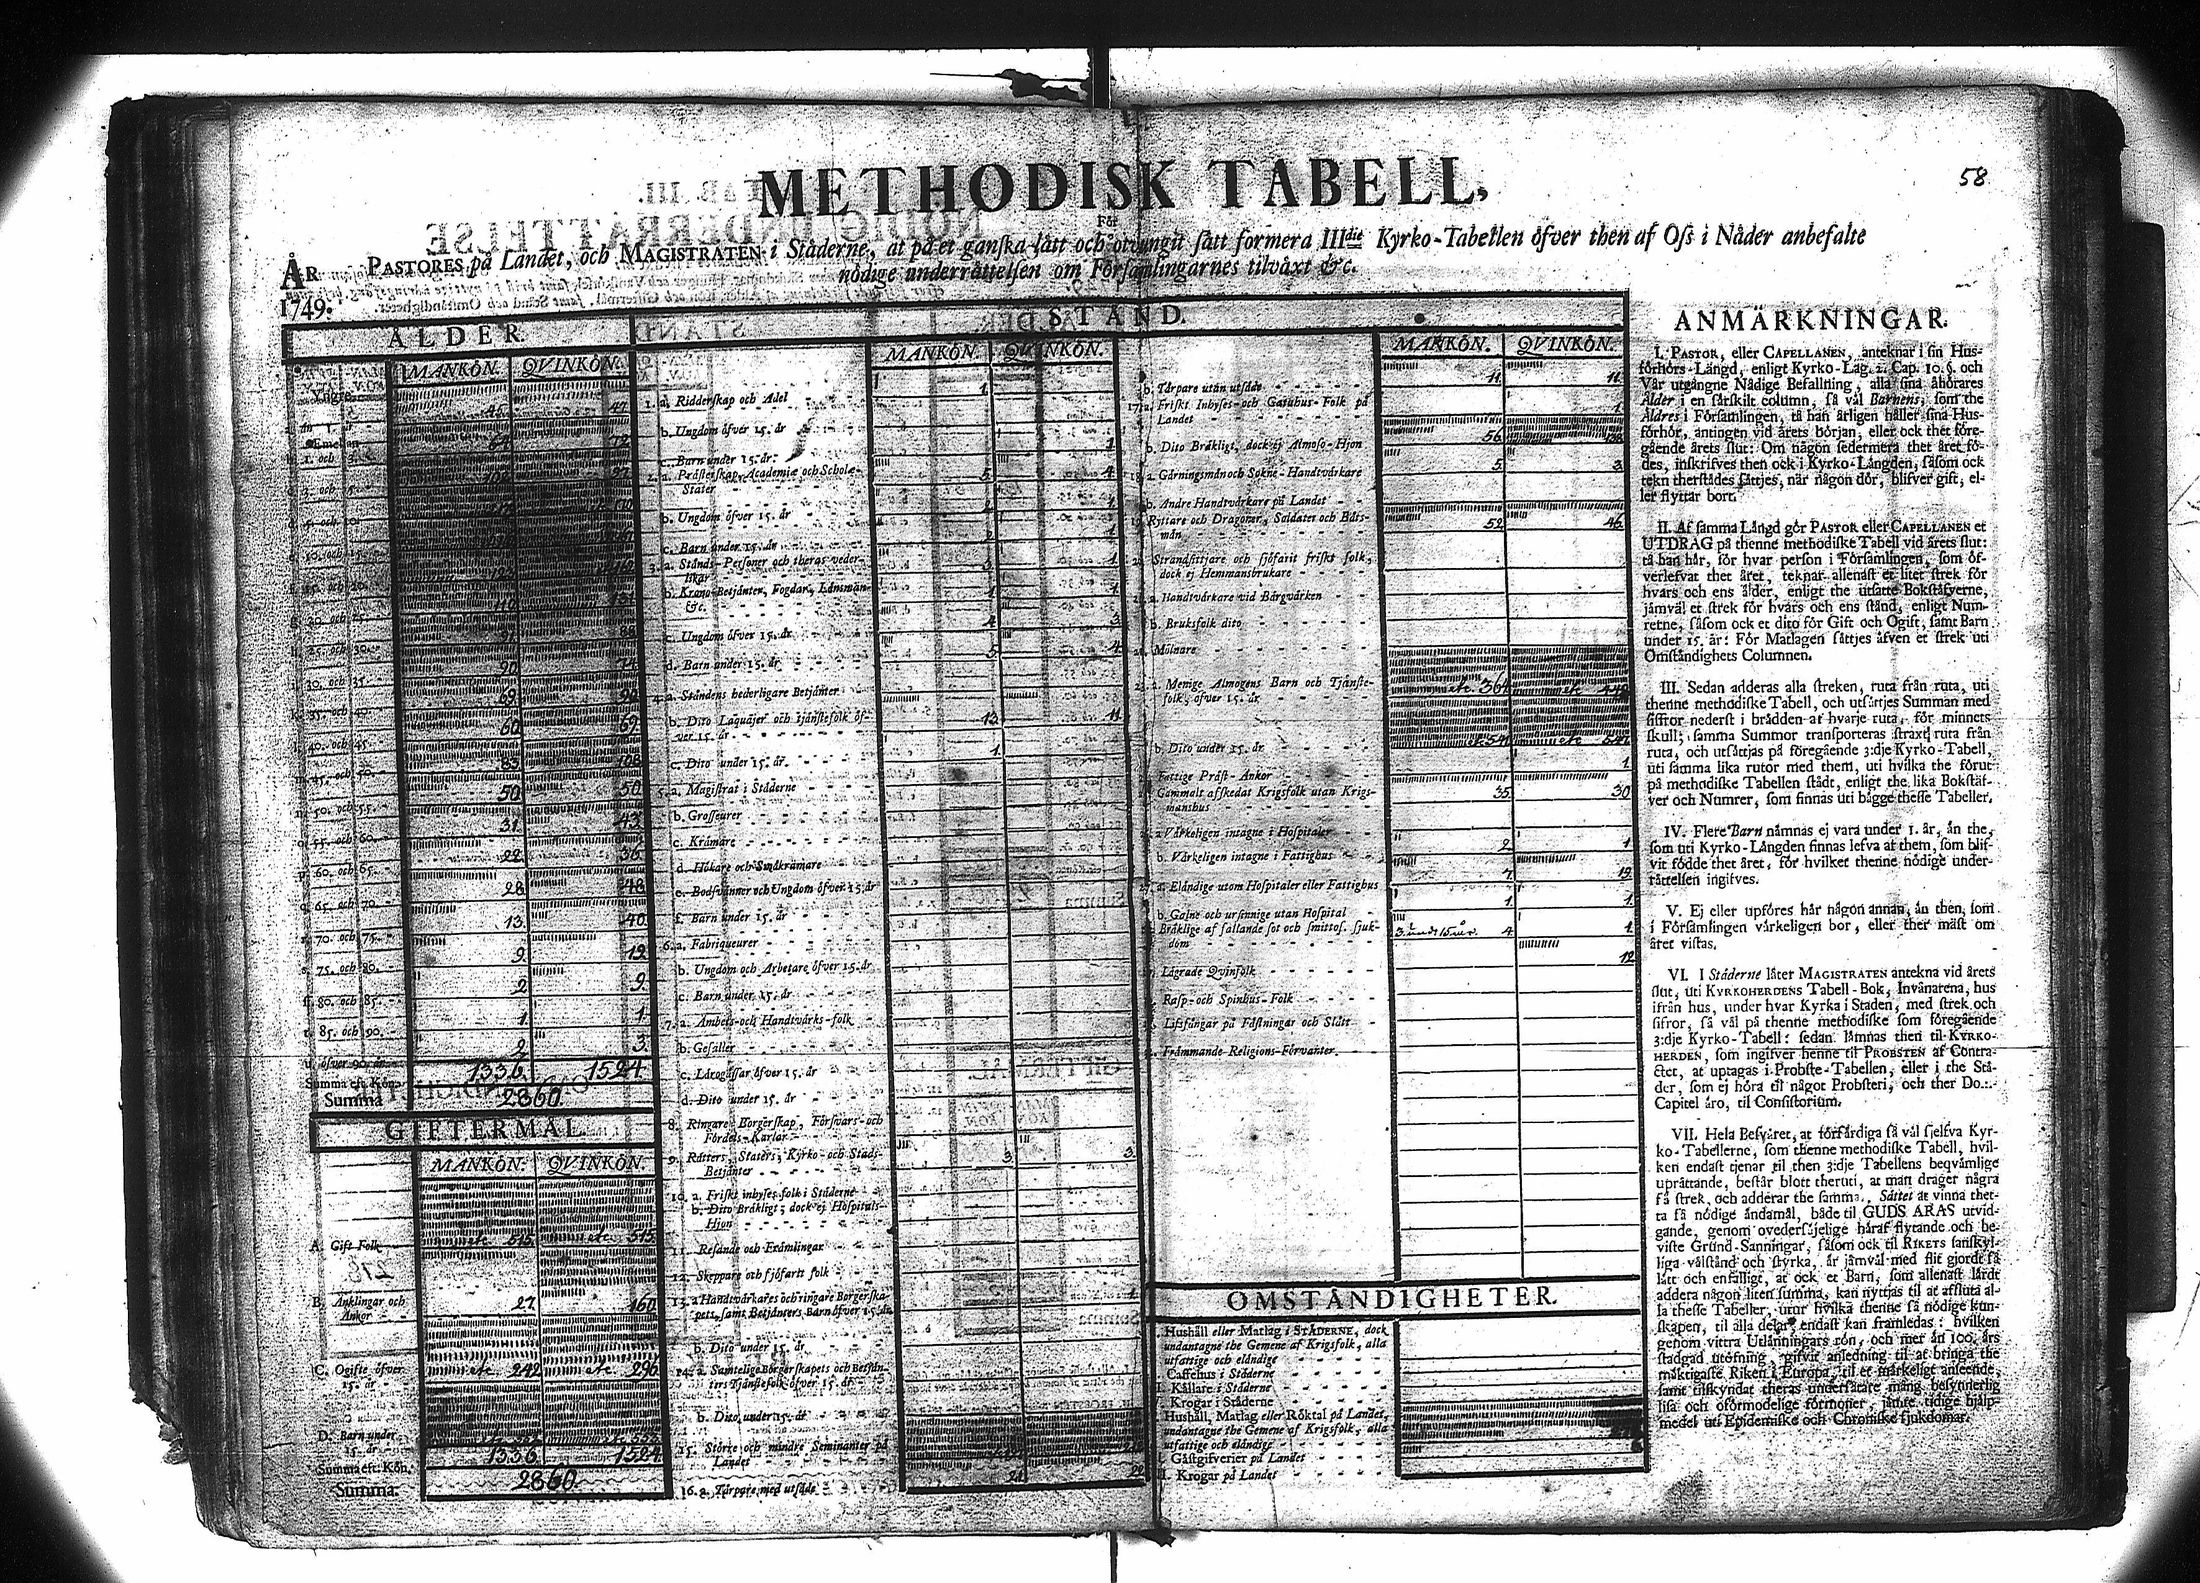 58
METHODISK TABELL,
För
PASTORES på Landet, och MAGISTRATEN i Städerne, at på et ganska lått och otvungit sått formera IIIdie Kyrko-Tabellen öfver then af Oss i Nåder anbefalte
nödige underråttelsen om Församlingarnes tilvåxt &c.
ÅR
1749.
ÅLDER.
MANKÖN. QVINKÖN.
Yngre
45. 47.
Emellan
1. och 3. 64. 72.
3. och 5. 102. 97.
5. och 10.
10. och 15.
15. och 20. 123.
20. och 25. 110. 131.
25. och 30. 91. 88.
30. och 35. 90. 74.
35. och 40. 69. 90.
40. och 45. 60. 69.
45. och 50. 83. 108.
50. och 55. 50. 50.
55. och 60. 31. 43.
60. och 65. 22. 36.
65. och 70. 28. 48.
70. och 75. 13. 40.
75. och 80. 9. 19.
80. och 85. 2. 9.
85. och 90. 1. 1.
öfver 90. år 2. 3.
Summa eft. Kön. 1336. 1524.
Summa 2860.
GIFTERMÅL.
MANKÖN. QVINKÖN.
A. Gift Folk etc. 515. etc. 515.
B. Änklingar och
Änkor 27. 160.
C. Ogifte öfver
15. år etc 242 etc. 296.
D. Barn under
15. år
Summa eft. Kön. 1336. 1524.
Summa. 2860.
STÅND.
MANKÖN. QVINKÖN.
1. a. Ridderskap och Adel 1.
b. Ungdom öfver 15. år
c. Barn under 15. år. 1
2. a. Pråsterskap, Academiæ och Scholæ-
Stater 5. 4.
b. Ungdom öfver 15. år 2. 1.
c. Barn under 15. år 2. 1.
3. a. Stånds-Personer och theras veder-
likar 3. 1.
b. Krono-Betjånter, Fogdar, Lånsmån
&c. 1. 1.
c. Ungdom öfver 15. år 4. 3.
d. Barn under 15. år 5. 4.
4. a. Ståndens hederligare Betjånter
b. Dito Laquajer och tjånstefolk öf-
ver 15. år 12. 11.
c. Dito under 15. år. 1.
5. a. Magistrat i Städerne
b. Grosseurer
c. Kråmare
d. Hökare och Småkråmare
e. Bodsvånner och Ungdom öfver 15. år
f. Barn under 15. år
6. a. Fabriqueurer
b. Ungdom och Arbetare öfver 15. år
c. Barn under 15. år
7. a. Ambets-och Handtvårks-folk
b. Gesåller
c. Lårogåssar öfver 15. år
d. Dito under 15. år
8. Ringare Borgerskap, Försvars-och
Fördels-Karlar
9. Råtters, Staters, Kyrko-och Stads-
Betjånter 3. 3.
10. a. Friskt inhyses-folk i Städerne
b. Dito Bråkligt; dock ej Hospitals-
Hjon
11. Resande och Fråmlingar
12. Skeppare och sjöfarit folk
13. a. Handtvårkares och ringare Borgerska-
pets, samt Betjånters Barn öfver 15. år 1.
b. Dito under 15. år
14. a. Samtelige Borgerskapets och Betjån-
ters Tjånstefolk öfver 15. år
b. Dito under 15. år
15. Större och mindre Seminanter på
Landet
16. a. Torpare med utsåde 21. 22.
MANKÖN. QVINKÖN.
b. Torpare utan utsåde 11. 11.
17. a. Friskt Inhyses-och Gatuhus-Folk på
Landet 1.
b. Dito Bråkligt, dock ej Almoso-Hjon 56. 138.
18. a. Gårningsmån och Sokne-Handtvårkare 5. 3.
b. Andre Handtvårkare på Landet
19. Ryttare och Dragoner, Soldater och Båts-
mån 52. 46.
Strandsittjare och sjöfarit friskt folk,
dock ej Hemmansbrukare
a. Handtvårkare vid Bårgvårken
b. Bruksfolk dito
Mölnare
a. Menige Almogens Barn och Tjånste-
folk, öfver 15. år. etc. 364. etc
b. Dito under 15. år
Fattige Pråst-Änkor 1
Gammalt afskedat Krigsfolk utan Krigs-
manshus 35. 30.
a. Vårkeligen intagne i Hospitaler
b. Vårkeligen intagne i Fattighus 2. 1
27. a. Elåndige utom Hospitaler eller Fattighus 7. 19.
b. Galne och ursinnige utan Hospital 1. 1.
Bråklige af fallande sot och smittos. sjuk-
dom 4. 1.
Lågrade Qvinfolk 12
Rasp-och Spinhus-Folk
Lifsfångar på Fåstningar och Slått
Fråmmande Religions-Förvanter
OMSTÅNDIGHETER.
Hushåll eller Matlag i STÄDERNE, dock
undantagne the Gemene af Krigsfolk, alla
utfattige och elåndige
Caffehus i Städerne
Kållare i Städerne
Krogar i Städerne
Hushåll, Matlag eller Röktal på Landet,
undantagne the Gemene af Krigsfolk, alla
utfattige och elåndige
Gåstgifverier på Landet
Krogar på Landet
ANMÄRKNINGAR.
I. PASTOR, eller CAPELLANEN, anteknar i sin Hus-
förhörs-Långd, enligt Kyrko-Lag. 2. Cap. 10. §. och
Vår utgångne Nådige Befallning, alla sina åhörares
Ålder i en sårskilt column, så vål Barnens, som the
Åldres i Församlingen, tå han årligen håller sina Hus-
förhör, antingen vid årets början, eller ock thet före-
gående årets slut: Om någon sedermera thet året fö-
des, inskrifves then ock i Kyrko-Långden, såsom ock
tekn therstådes såttjes, når någon dör, blifver gift, el-
ler flyttar bort.
II. Af samma Långd gör PASTOR eller CAPELLANEN et
UTDRAG på thenne methodiske Tabell vid årets slut:
tå han hår, för hvar person i Församlingen, som öf-
verlefvat thet året, teknar allenast et litet strek för
hvars och ens ålder, enligt the utsatte Bokståfverne,
jåmvål et strek för hvars och ens stånd, enligt Num-
retne, såsom ock et dito för Gift och Ogift, samt Barn
under 15. år: För Matlagen såttjes åfven et strek uti
Omståndighets Columnen.
III. Sedan adderas alla streken, ruta från ruta, uti
thenne methodiske Tabell, och utsåttjes Summan med
siffror nederst i brådden af hvarje ruta, för minnets
skull; samma Summor transporteras straxt ruta från
ruta, och utsåttjas på föregående 3:dje Kyrko-Tabell,
uti samma lika rutor med them, uti hvilka the förut
på methodiske Tabellen stådt, enligt the lika Bokståf-
ver och Numrer, som finnas uti bågge thesse Tabeller.
IV. Flere Barn nåmnas ej vara under 1. år, ån the,
som uti Kyrko-Långden finnas lefva af them, som blif-
vit födde thet året, för hvilket thenne nödige under-
råttelsen ingifves.
V. Ej eller upföres hår någon annan, ån then, som
i Församlingen vårkeligen bor, eller ther måst om
året vistas.
VI. I Städerne låter MAGISTRATEN antekna vid årets
slut, uti KYRKOHERDENS Tabell-Bok, Invånarena, hus
ifrån hus, under hvar Kyrka i Staden, med strek och
sifror, så vål på thenne methodiske som föregående
3:dje Kyrko-Tabell: sedan låmnas then til KYRKO-
HERDEN, som ingifver henne til PROBSTEN af Contra-
ctet, at uptagas i Probste-Tabellen, eller i the Stå-
der, som ej höra til något Probsteri, och ther Do.:.
Capitel åro, til Consistorium.
VII. Hela Besvåret, at förfårdiga så vål sjelfva Kyr-
ko-Tabellerne, som thenne methodiske Tabell, hvil-
ken endast tjenar til then 3:dje Tabellens beqvåmlige
uprättande, beståt blott theruti, at man drager några
få strek, och adderar the samma. Såttet at vinna thet-
ta så nödige åndamål, både til GUDS ÄRAS utvid-
gande, genom ovedersåjelige håraf flytande och be-
viste Grund-Sanningar, såsom ock til RIKETS sanskyl-
liga vålstånd och styrka, år jåmvål med flit gjordt så
lått och enfålligt, at ock et Barn, som allenast lårdt
addera någon liten summa, kan nyttjas til at afsluta al-
la thesse Tabeller, utur hvilka thenne så nödige kun-
skapen, til alla delar, endast kan framledas: hvilken
genom vittra Utlånningars rön, och mer ån 100. års
stadgad utöfning, gifvit anledning til at bringa the
måktigaste Riken i Europa, til et mårkeligt anseende,
samt tilskyndat theras undersåtare mång besynnerlig
lisa och oförmodelige förmoner, jåmte tidige hjålp-
medel uti Epidemiske och Chroniske sjukdomar.